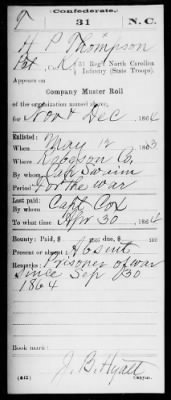 Confederate.
T 31 N.C.
H P Thompson
Pvt, Co. K, 31 Reg't North Carolina
Infantry (State Troops).
Appears on
Company Muster Roll
of the organization named above,
for Nov & Dec, 1864.
Enlisted:
When May 12, 1863
Where Robeson Co.
By whom
Period For the war
Last paid:
By whom Capt Cox
To what time Apr 30, 1864
Bounty: Paid, $ 100; due, $ 100
Present or absent Absent
Remarks: Prisoner of war
since Sep 30
1864
Book mark:
J. B. Hyatt
(642) Copyist.